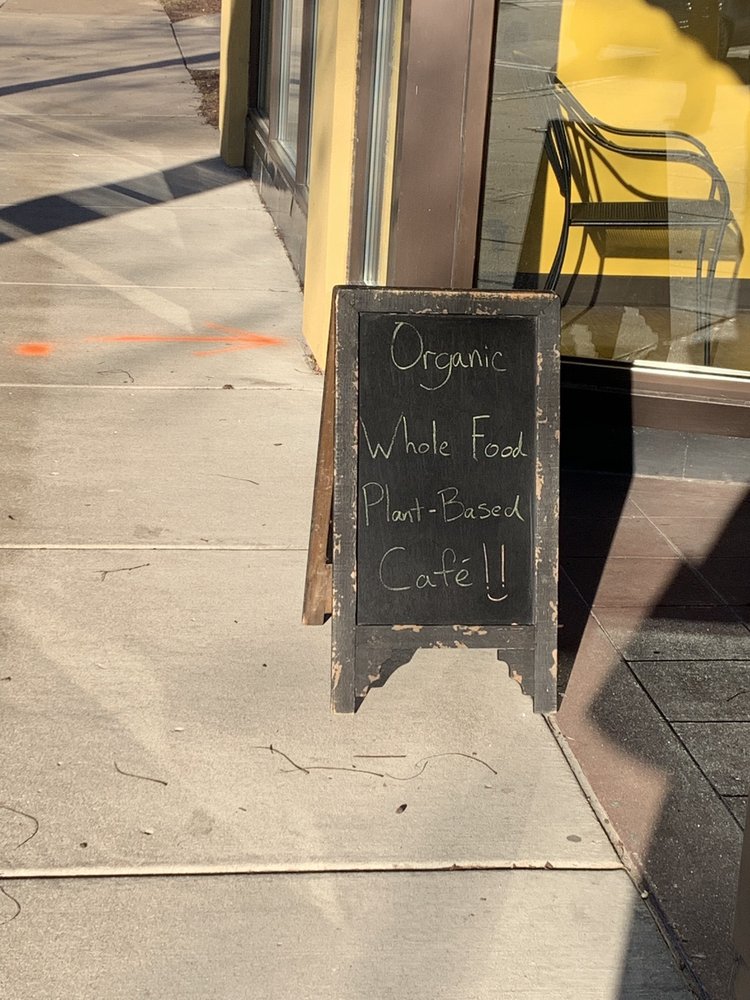 Organic
Whole Food
Plant-Based
Café!!